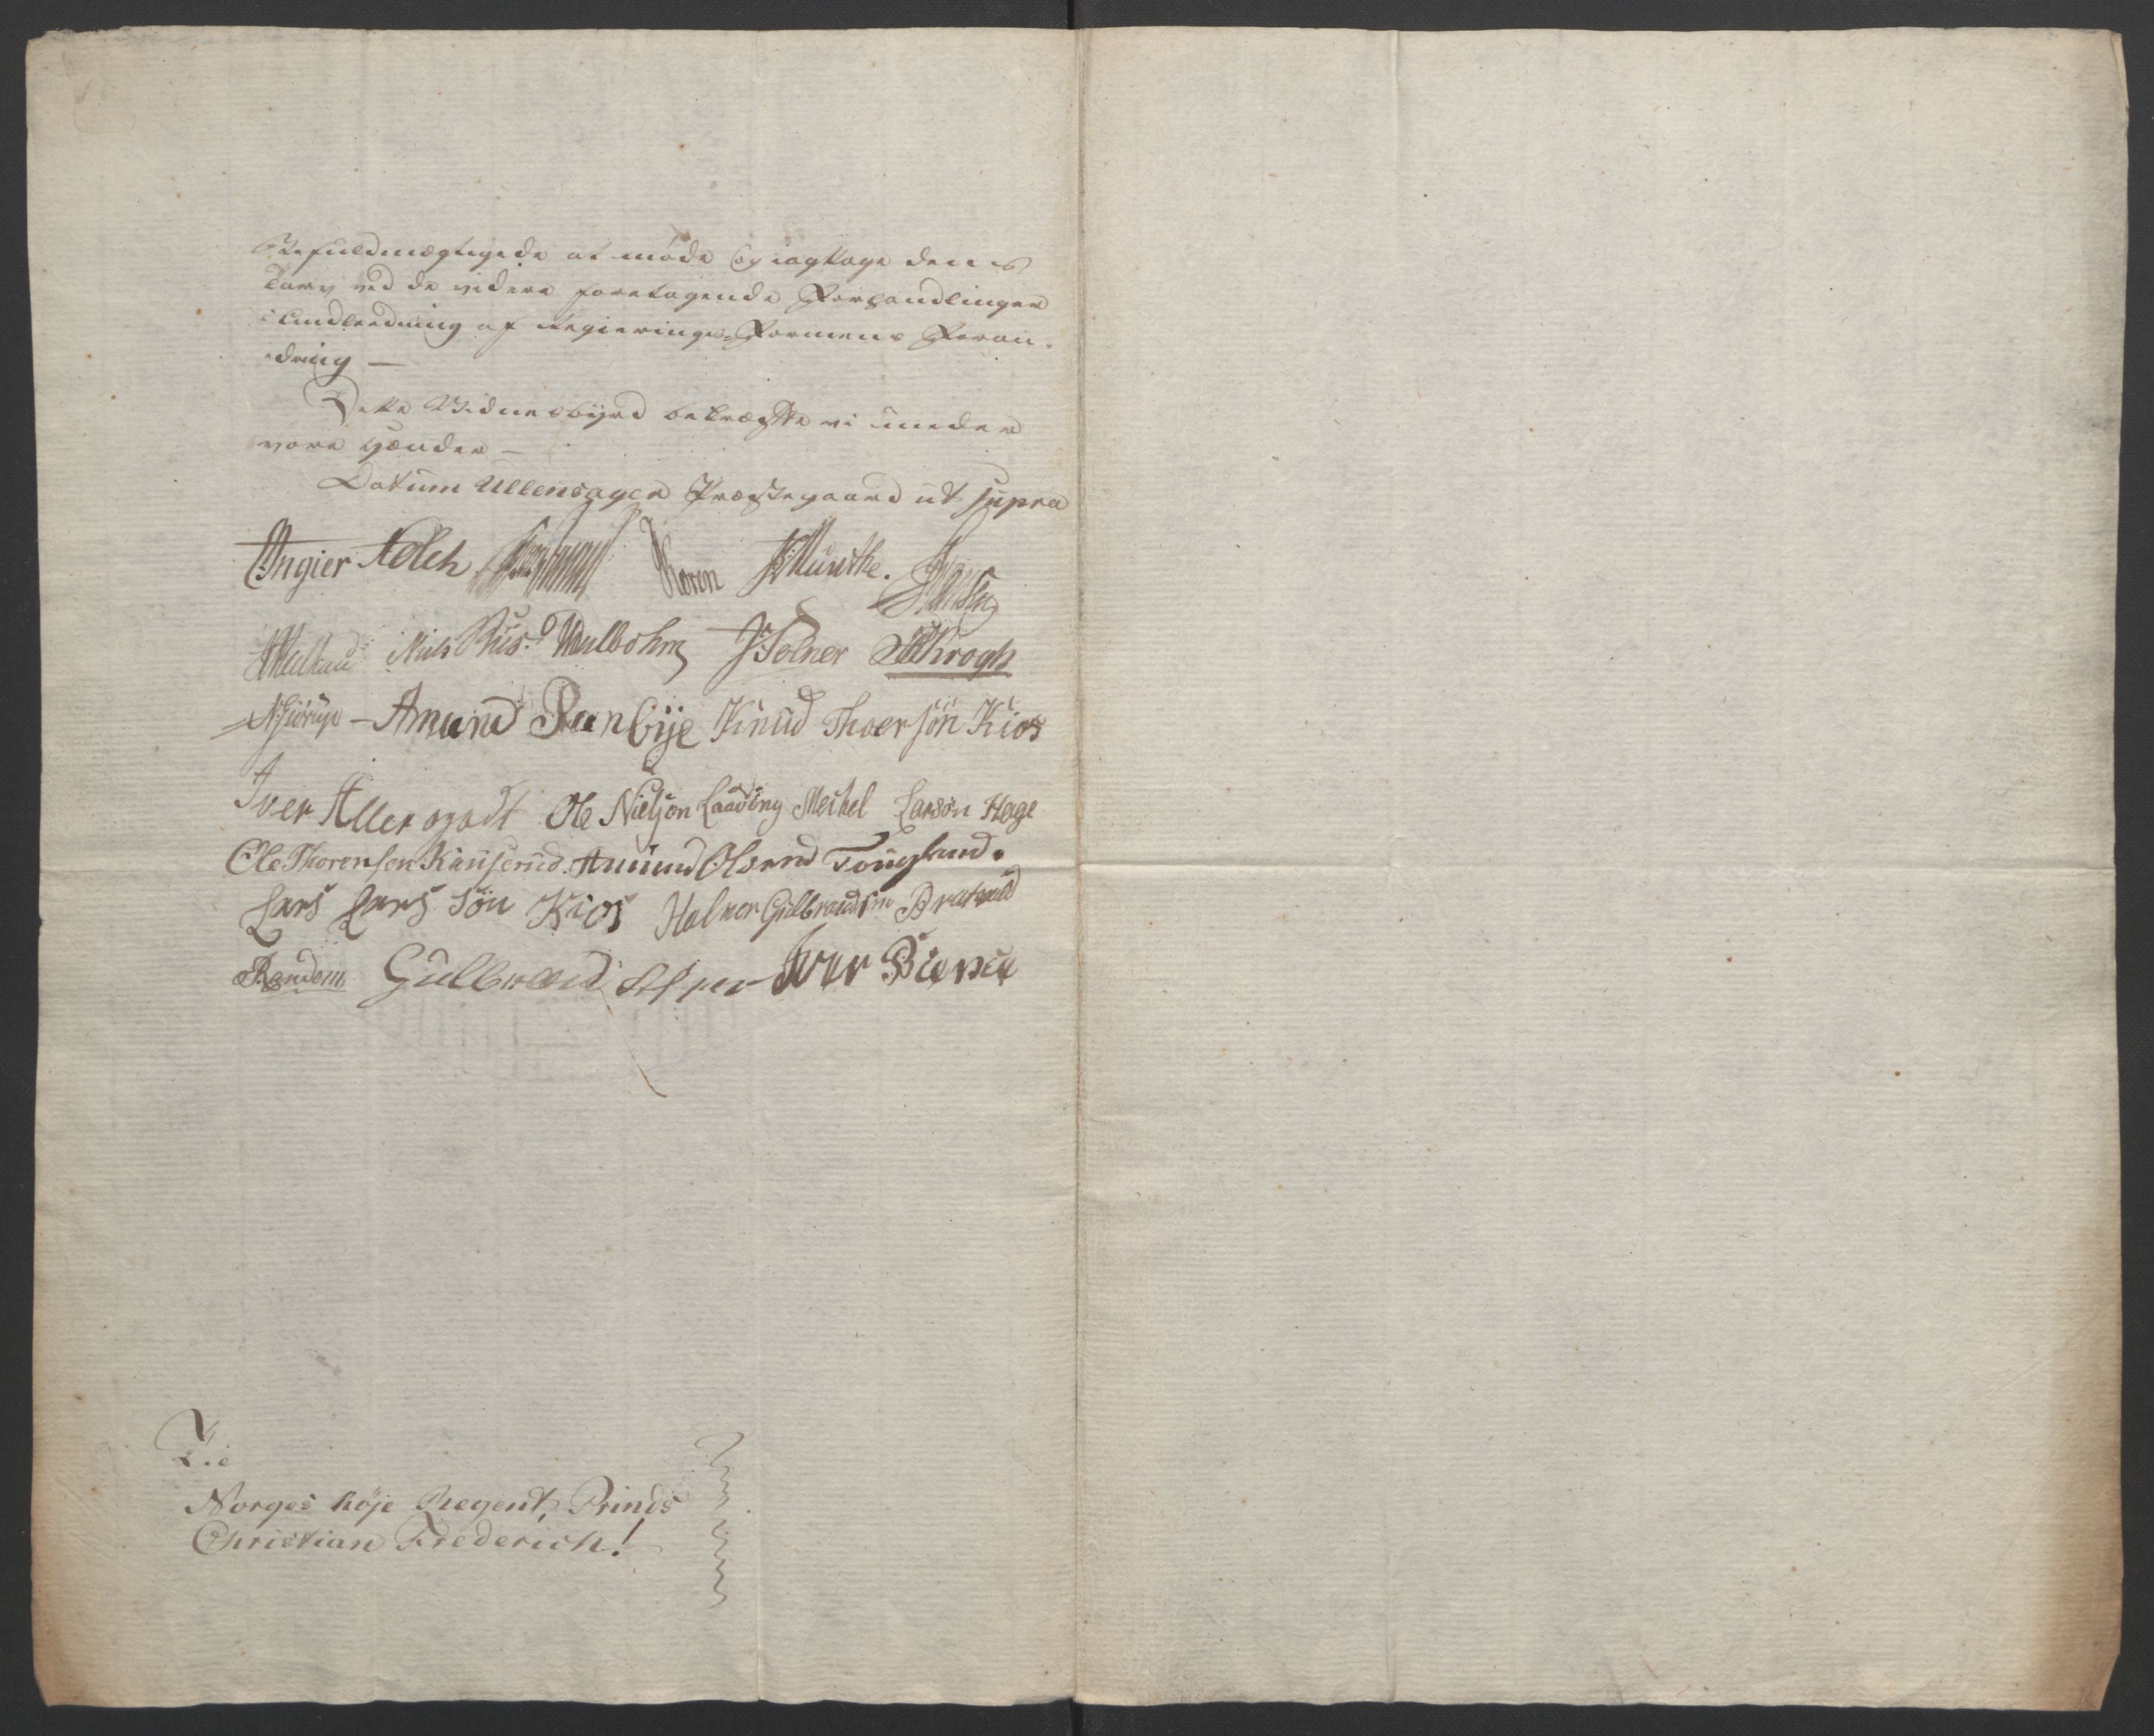 Befuldmægtigede at møde og iagttage dens
Tarv ved de videre foretagende Forhandlinger
i Andledning af Regierings-Formens Foran-
dring —
Dette Vidnesbyrd bekræfte vi under
vore Hænder —
Datum Ullensager Præstegaard ut supra
Angier Koren JMünthe.
Niels Wulbohm J: Tolner Krogh
Amund Ranbye Knud Thoersøn Kios
Iver Allergodt Ole Nielson Laading Meikel Larsøn Hage
Ole Thorensen Amund Olsend Fougland.
Lars Lars Søn Kios Halvor Gulbrandsen
Randem Gulbrand Iver
Til
Norges høje Regent, Prinds
Christian Frederich!